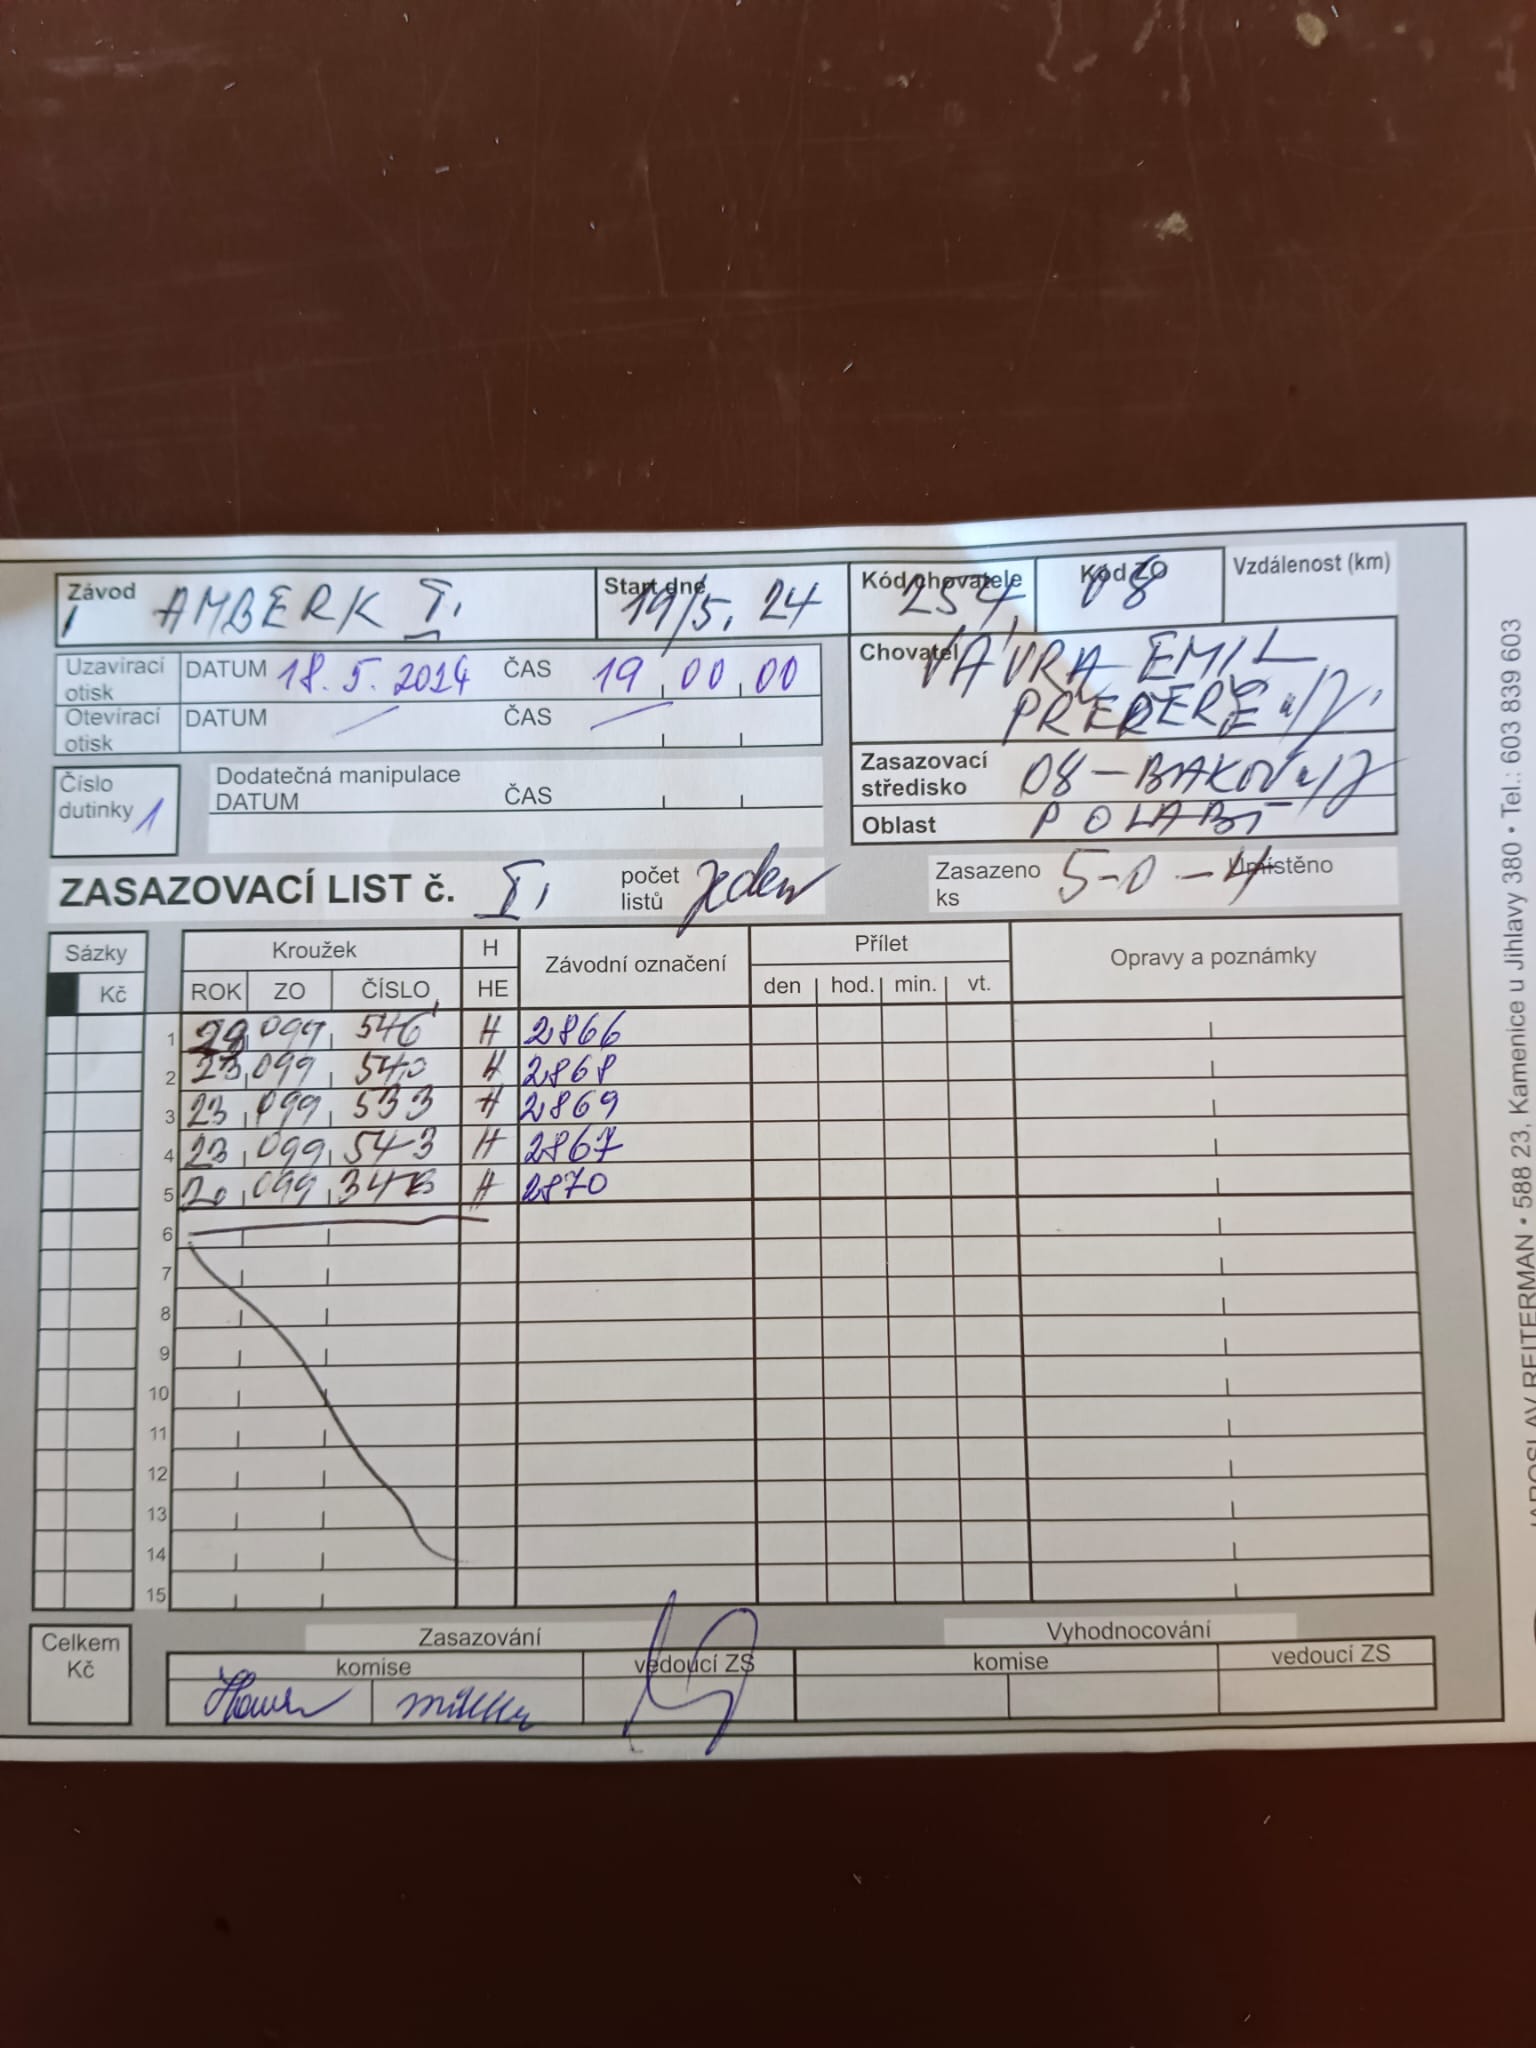 Závod AMBERK I. Start dne 19/5. 24 Kód chovatele 254 Kód ZO 08 Vzdálenost (km)
Uzavírací otisk DATUM 18. 5. 2024 ČAS 19 00 00
Otevírací otisk DATUM ČAS
Chovatel VÁVRA EMIL
PŘEPEŘE n/J.
Číslo dutinky 1
Dodatečná manipulace
DATUM ČAS
Zasazovací středisko 08 - BAKOV n/J
Oblast POLABÍ
ZASAZOVACÍ LIST č. I. počet listů Jeden Zasazeno ks 5-0-4 Umístěno
Sázky Kroužek H Závodní označení Přílet Opravy a poznámky
Kč ROK ZO ČÍSLO HE den hod. min. vt.
1 099 546 H 2866
2 23 099 540 H 2868
3 23 099 533 H 2869
4 23 099 543 H 2867
5 20 099 H 2870
6
7
8
9
10
11
12
13
14
15
Celkem Kč
Zasazování Vyhodnocování
komise vedoucí ZS komise vedoucí ZS
JAROSLAV REITERMAN • 588 23, Kamenice u Jihlavy 380 • Tel.: 603 839 603